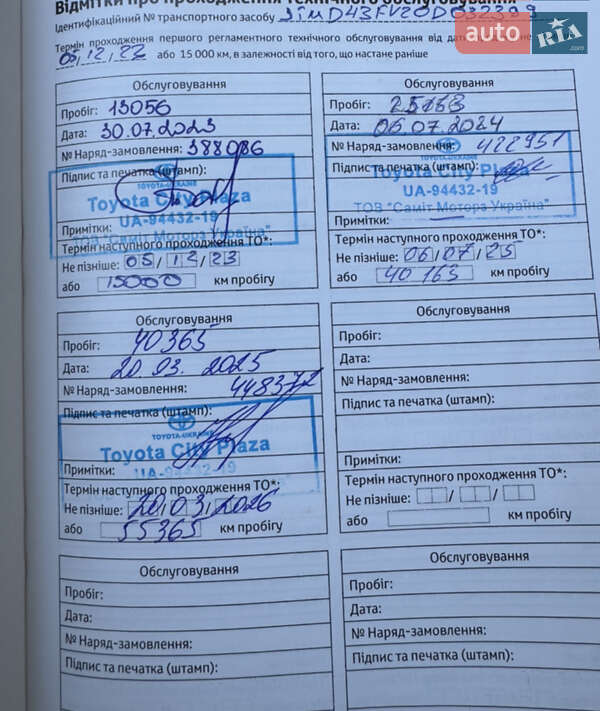 Відмітки про проходження технічного обслуговування
Ідентифікаційний № транспортного засобу
Термін проходження першого регламентного технічного обслуговування від дати
05/12/23 або 15 000 км, в залежності від того, що настане раніше
auto RIA.com
Обслуговування
Пробіг: 13056
Дата: 30.07.2023
№ Наряд-замовлення: 388086
Підпис та печатка (штамп):
TOYOTA-UKRAINE
Toyota City Plaza
UA-94432-19
ТОВ "Саміт Моторз Україна"
Примітки:
Термін наступного проходження ТО*:
Не пізніше: 05/12/23
або 15000 км пробігу
Обслуговування
Пробіг: 25163
Дата: 06.07.2024
№ Наряд-замовлення: 422951
Підпис та печатка (штамп):
TOYOTA-UKRAINE
Toyota City Plaza
UA-94432-19
ТОВ "Саміт Моторз Україна"
Примітки:
Термін наступного проходження ТО*:
Не пізніше: 06/07/25
або 40 163 км пробігу
Обслуговування
Пробіг: 40365
Дата: 20.03.2025
№ Наряд-замовлення: 448372
Підпис та печатка (штамп):
TOYOTA-UKRAINE
Toyota City Plaza
UA-94432-19
Примітки:
Термін наступного проходження ТО*:
Не пізніше: 20/03/2026
або 55365 км пробігу
Обслуговування
Пробіг:
Дата:
№ Наряд-замовлення:
Підпис та печатка (штамп):
Примітки:
Термін наступного проходження ТО*:
Не пізніше: / /
або км пробігу
Обслуговування
Пробіг:
Дата:
№ Наряд-замовлення:
Підпис та печатка (штамп):
Обслуговування
Пробіг:
Дата:
№ Наряд-замовлення:
Підпис та печатка (штамп):